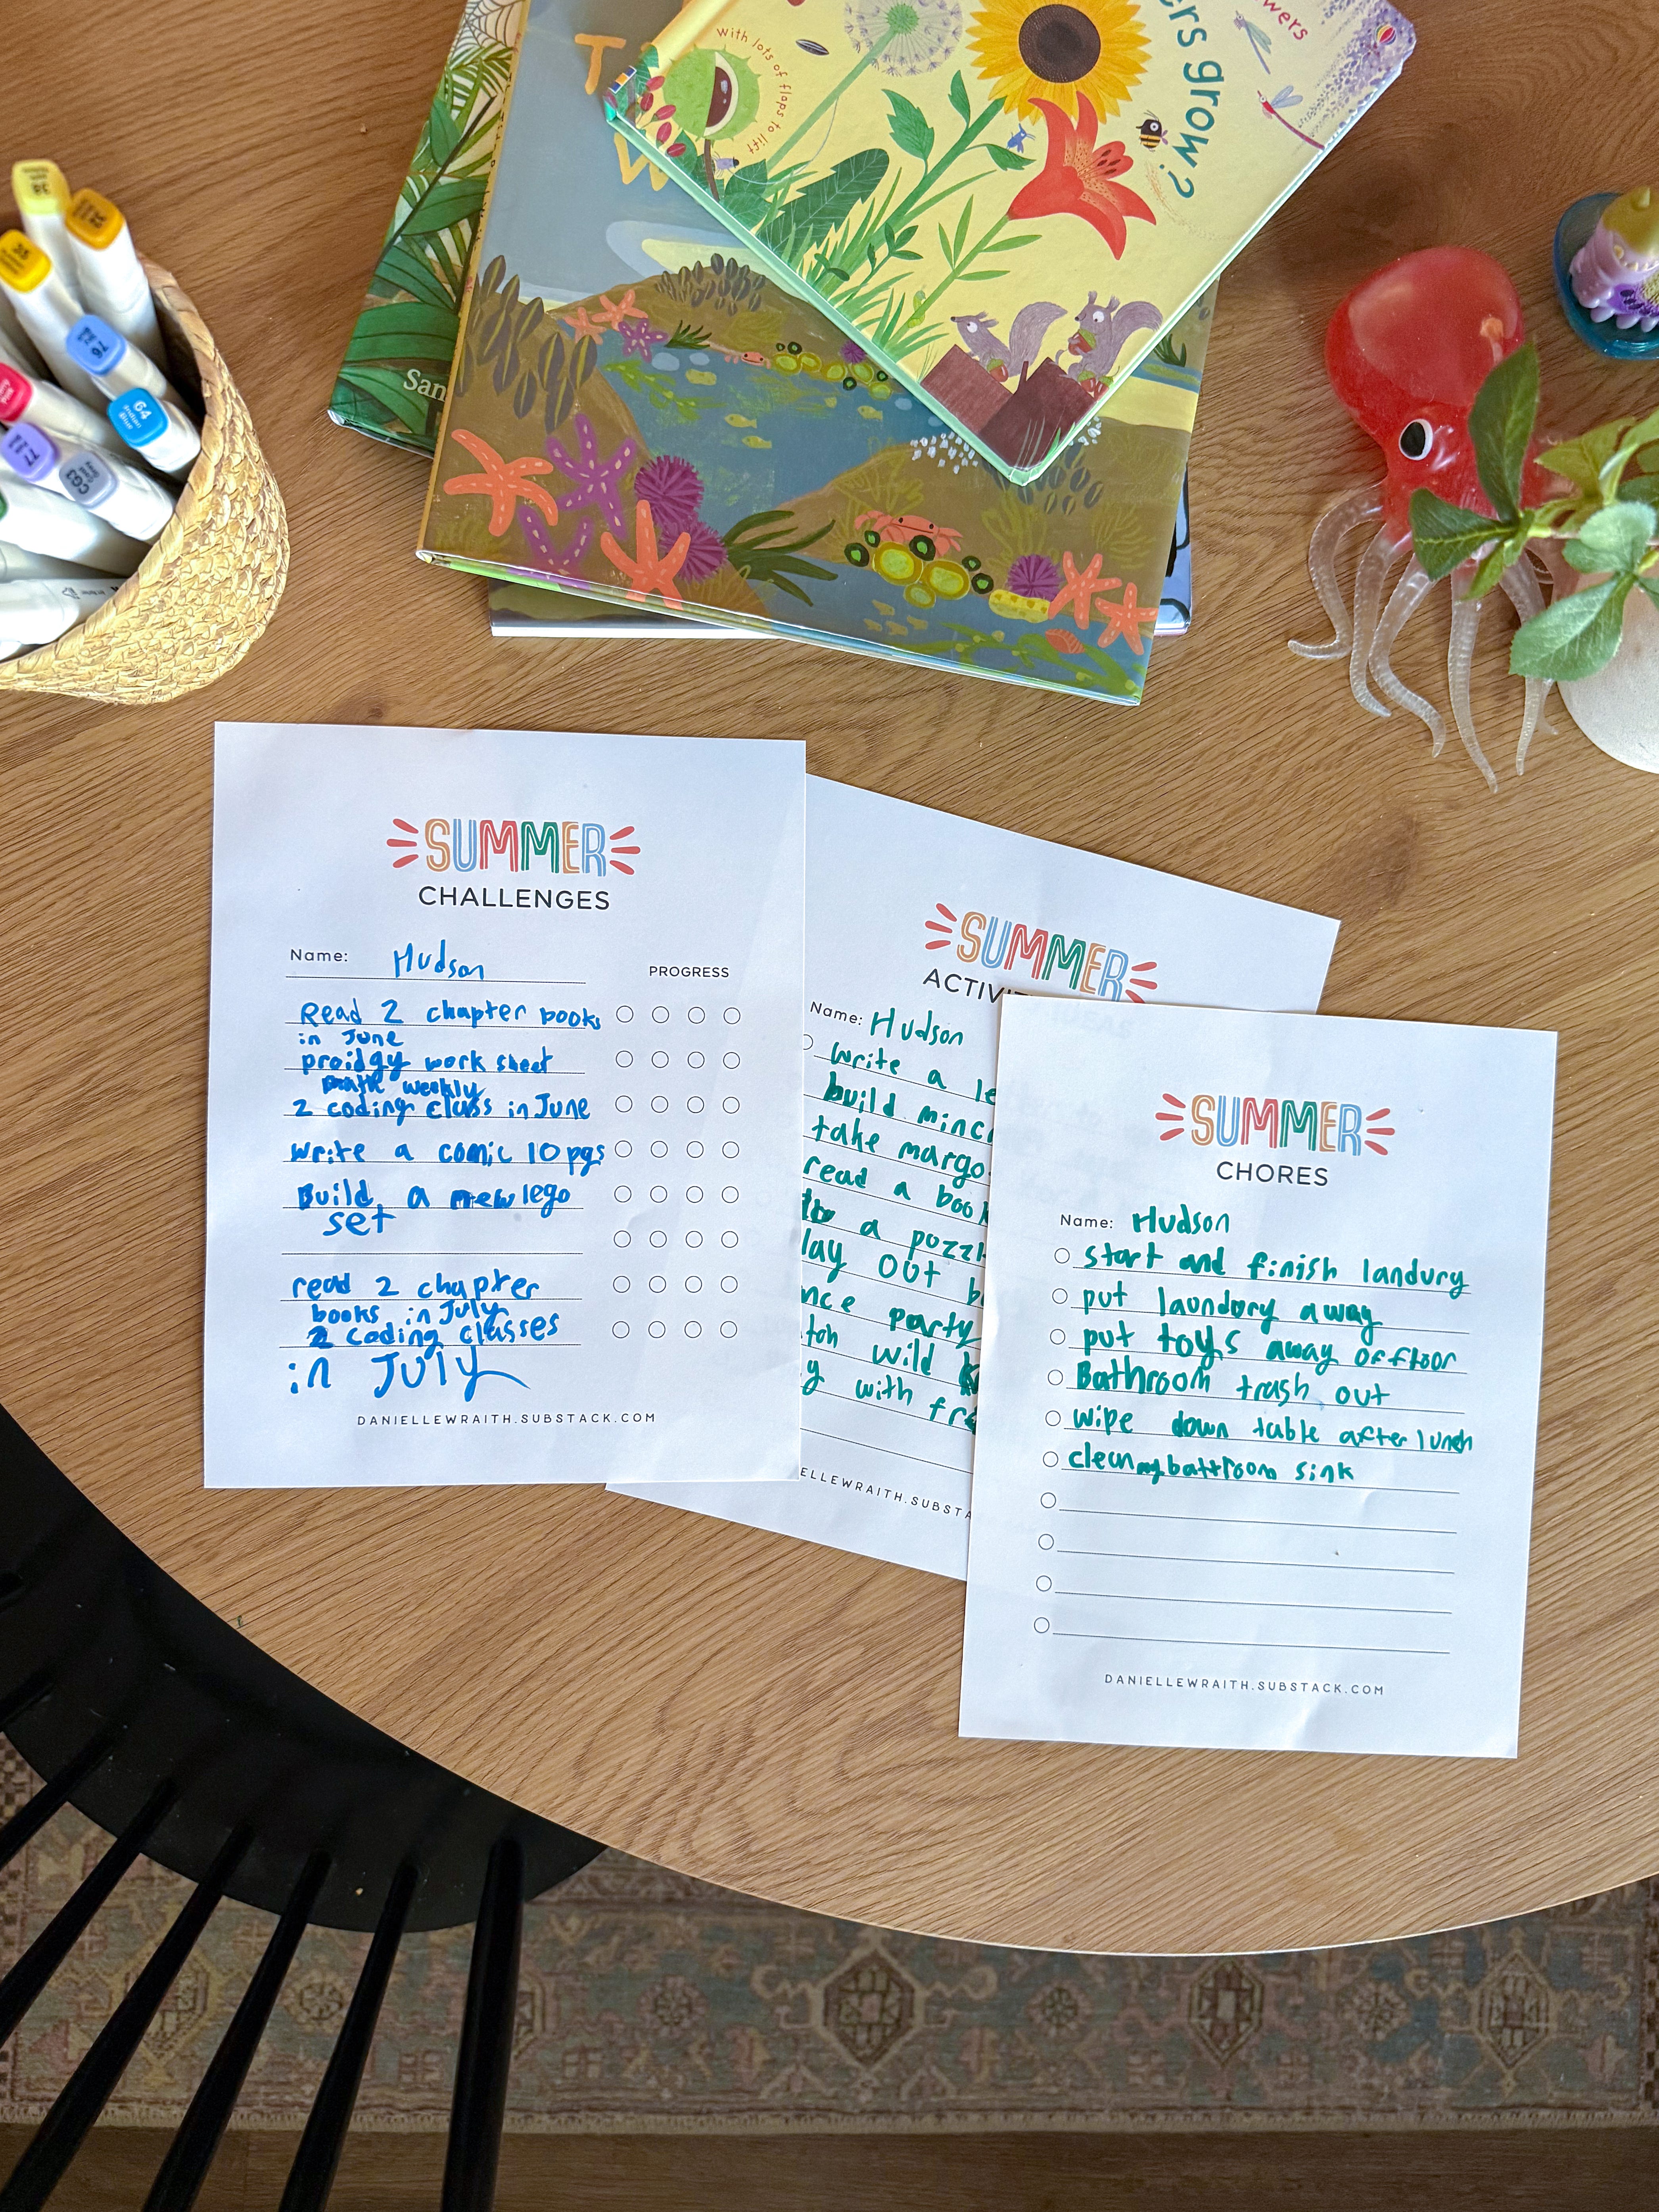 With lots of flaps to lift
ers grow?
wers
T
W
San
35
76
64
77
CG3
SUMMER
CHALLENGES
Name: Hudson
PROGRESS
Read 2 chapter books
in June
proidgy work sheet
math weekly
2 coding class in June
write a comic 10 pgs
Build a new lego
set
read 2 chapter
books in July
2 coding classes
in JULY
DANIELLEWRAITH.SUBSTACK.COM
SUMMER
ACTIVI
Name: Hudson
write a le
build minc
take margo
read a book
a puzzl
lay out b
nce party
tch wild k
y with fre
ELLEWRAITH.SUBSTA
SUMMER
CHORES
Name: Hudson
start and finish landury
put laundory away
put toys away of floor
Bathroom trash out
wipe down table after lunch
clean my bathroom sink
DANIELLEWRAITH.SUBSTACK.COM